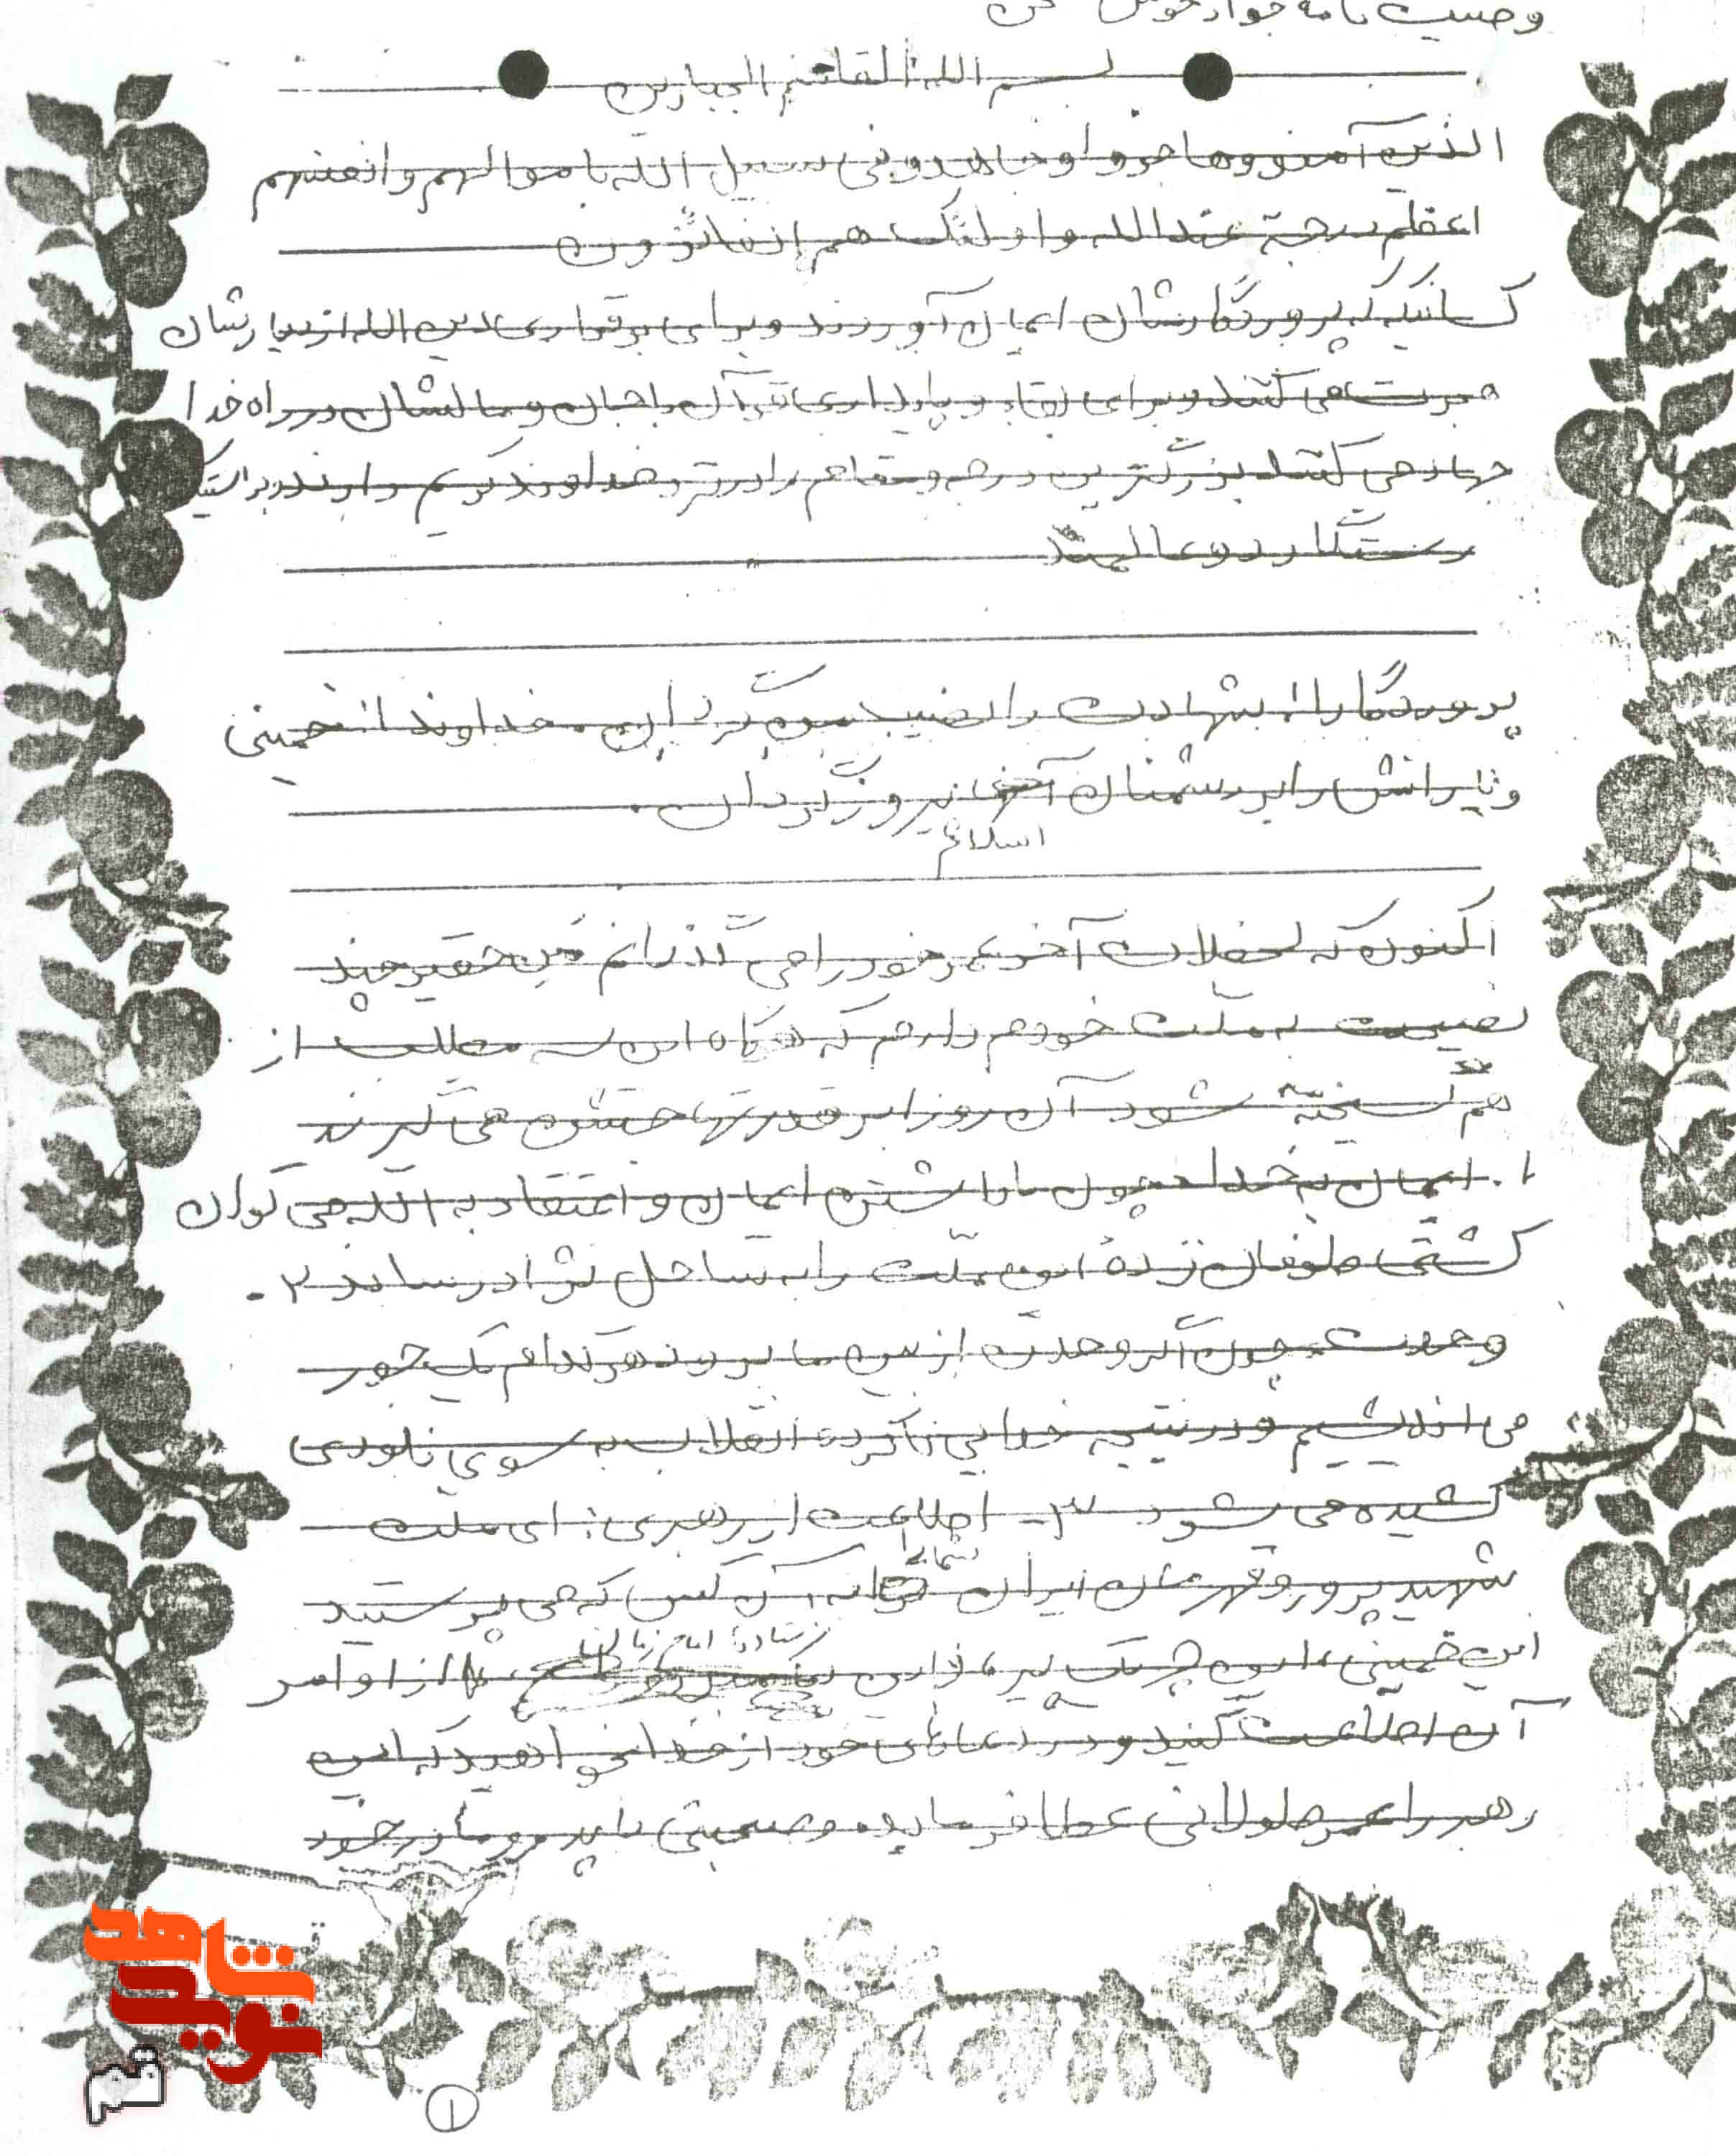 وصیت نامه جواد خوش
بسم الله القاسم الجبارین
الذین آمنو وهاجروا وجاهدو فی سبیل الله باموالهم وانفسهم
اعظم درجة عندالله واولئک هم الفائزون
کسانیکه به پروردگارشان ایمان آوردند و برای برقراری دین الله از دیارشان
هجرت می کنند و برای بقاء و پایداری قرآن با جان و مالشان در راه خدا
جهاد می کنند بزرگترین درجه و مقام را در نزد خداوند کریم دارند براستیکه
رستگار دو عالمند
پروردگارا! شهادت را نصیب من گردان. خداوندا خمینی
و یارانش را بر دشمنان پیروز گردان.
اسلام
اکنون که لحظات آخر عمر خود را می گذرانم من حقیر چند
نصیحت به ملت خودم دارم که هرگاه این سه مطلب از
هم گسیخته شود آن روز ابرقدرتها جشن می گیرند
۱. ایمان به خدا چون با داشتن ایمان و اعتقاد به الله می توان
کشتی طوفان زدهٔ این ملت را به ساحل نژاد رساند ۲.
وحدت چون اگر وحدت از بین ما برود هر کدام یک جور
می اندیشیم و در نتیجه خدایی ناکرده انقلاب به سوی نابودی
کشیده می شود ۳- اطاعت از رهبری: ای ملت
شهید پرور و قهرمان ایران شما را به آن کس که می پرستید
فرستادهٔ امام زمان
این خمینی، این چریک پیر، از اوامر
آن اطاعت کنید و در دعاهای خود از خدا بخواهید که این
رهبر را عمر طولانی عطا فرماید. وصیتی با پدر و مادر خود
شاهد
نوید
قم
۱